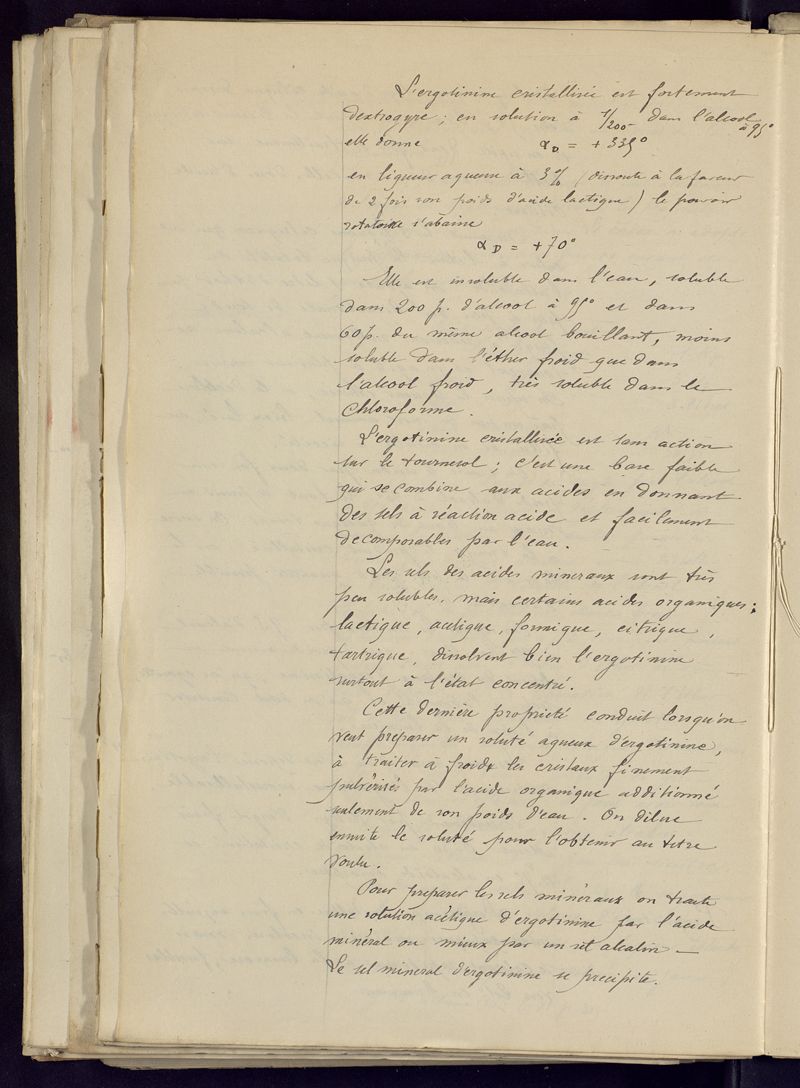 L'ergotinine cristallisée est fortement
dextrogyre ; en solution à 1/200 dans l'alcool
à 95°
elle donne αD = + 335°
en liqueur aqueuse à 3% (dissoute à la faveur
de 2 fois son poids d'acide lactique) le pouvoir
rotatoire s'abaisse
αD = +70°
Elle est insoluble dans l'eau, soluble
dans 200 p. d'alcool à 95° et dans
60 p. du même alcool bouillant, moins
soluble dans l'éther froid que dans
l'alcool froid, très soluble dans le
chloroforme.
L'ergotinine cristallisée est sans action
sur le tournesol ; c'est une base faible
qui se combine aux acides en donnant
des sels à réaction acide et facilement
decomposables par l'eau.
Les sels des acides mineraux sont très
peu solubles, mais certains acides organiques :
lactique, acétique, formique, citrique,
tartrique, dissolvent bien l'ergotinine
surtout à l'état concentré.
Cette dernière propriété conduit lorsqu'on
veut preparer un soluté aqueux d'ergotinine,
à traiter à froid les cristaux finement
pulvérisés par l'acide organique additionné
seulement de son poids d'eau. On dilue
ensuite le soluté pour l'obtenir au titre
voulu.
Pour preparer les sels minéraux on traite
une solution acétique d'ergotinine par l'acide
minéral ou mieux par un sel alcalin —
Le sel mineral d'ergotinine se precipite.